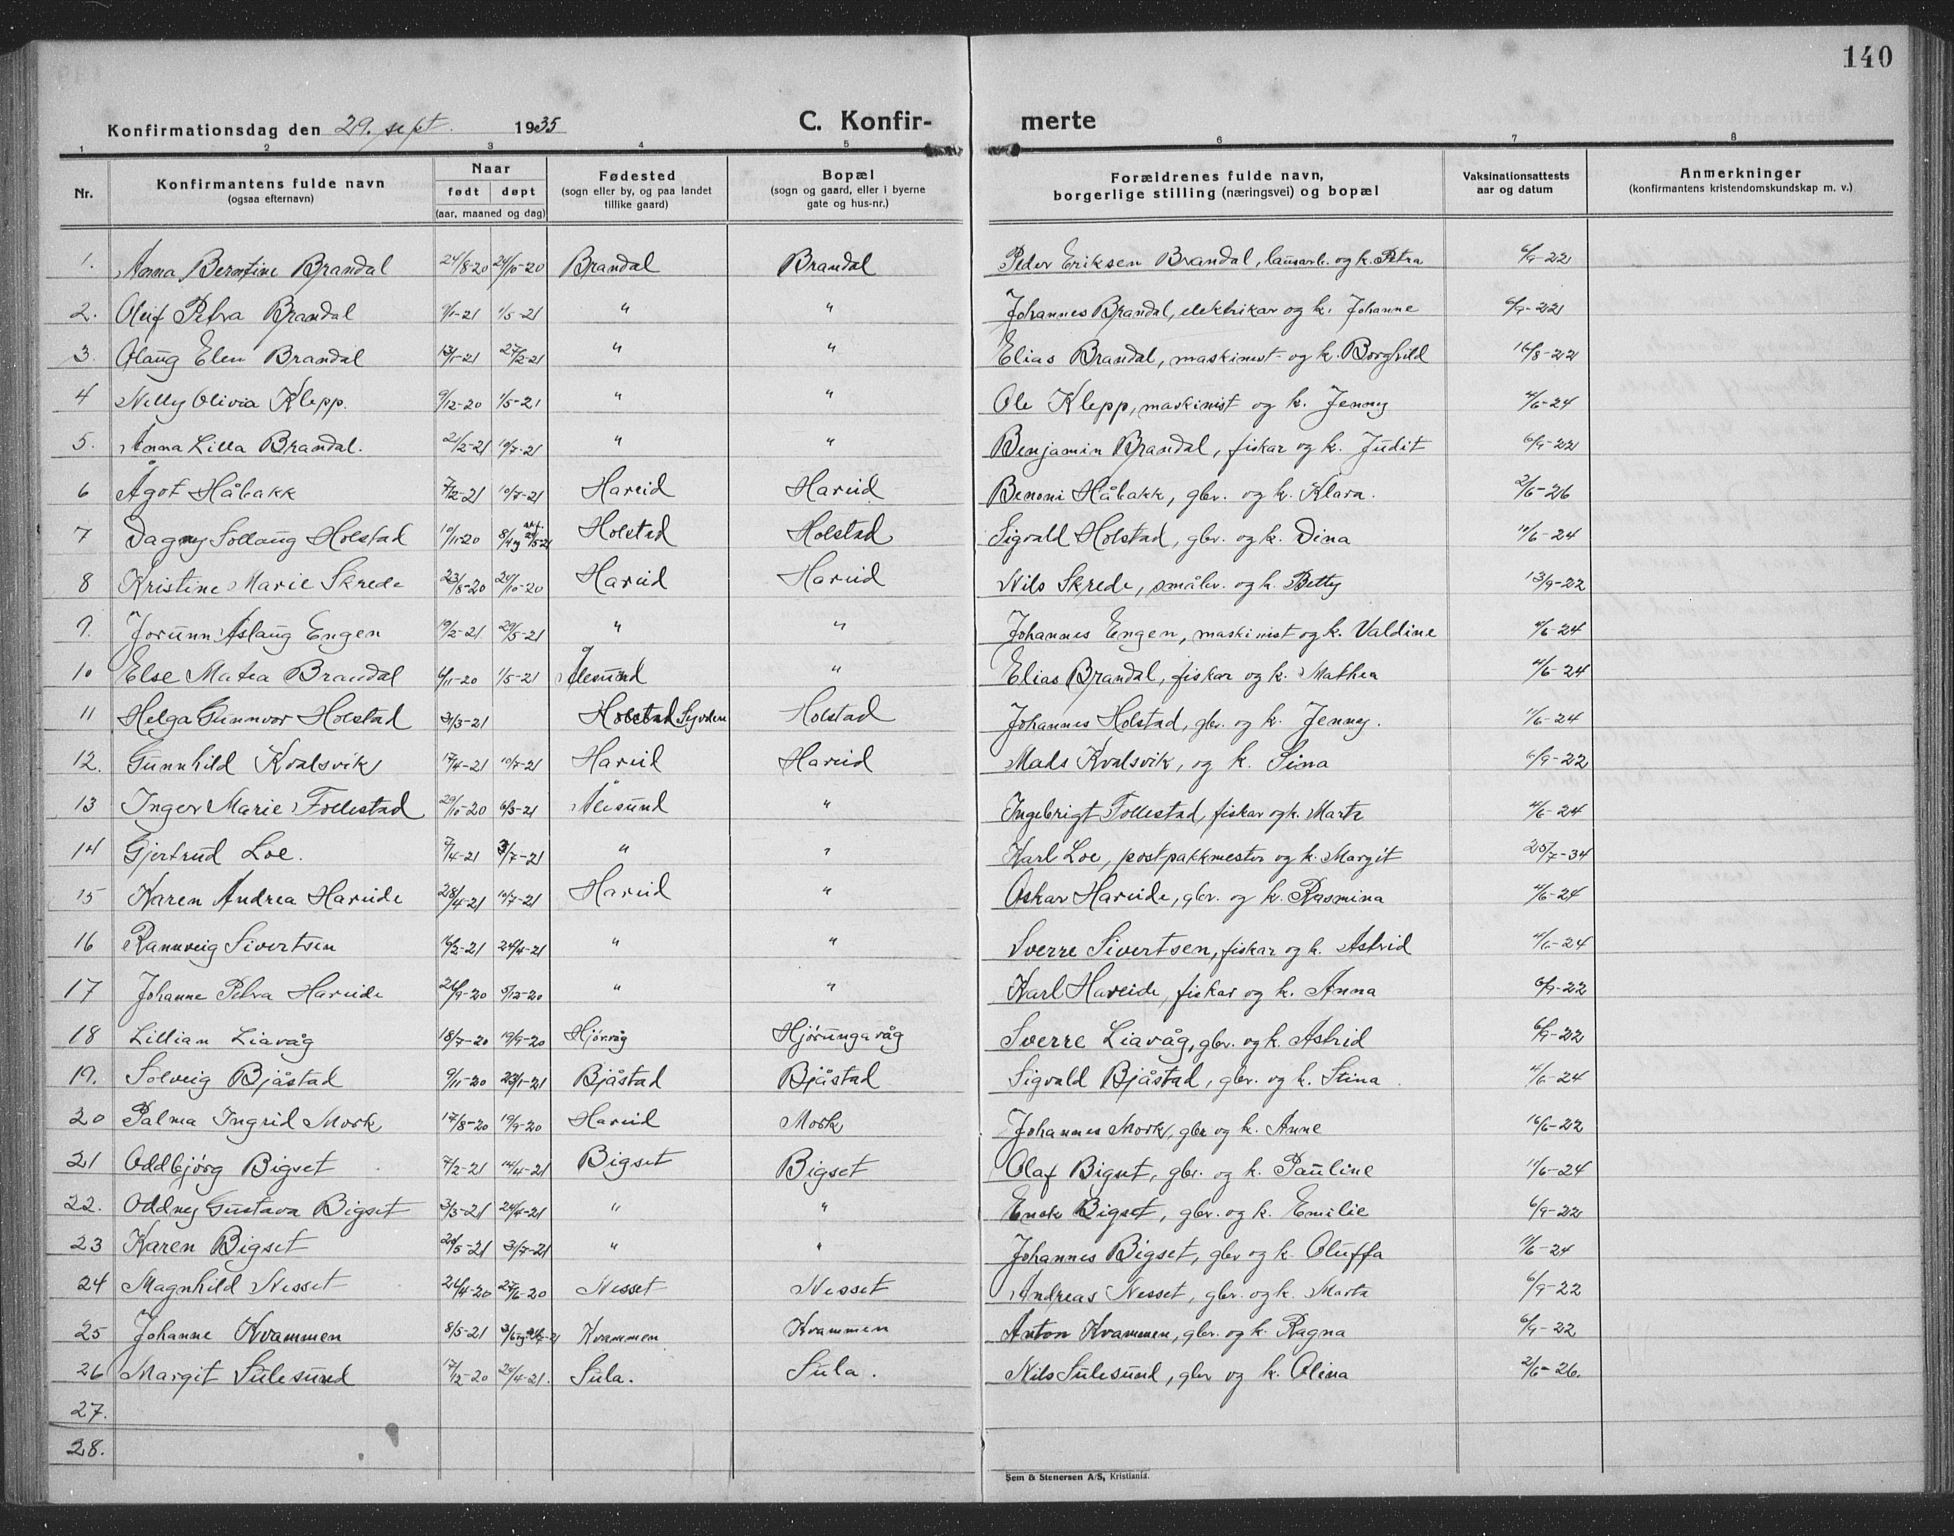 140
Konfirmationsdag den 29. sept. 1935 C. Konfirmerte
1 2 3 4 5 6 7 8
Nr. Konfirmantens fulde navn (ogsaa efternavn) Naar født døpt (aar, maaned og dag) Fødested (sogn eller by, og paa landet tillike gaard) Bopæl (sogn og gaard, eller i byerne gate og hus-nr.) Forældrenes fulde navn, borgerlige stilling (næringsvei) og bopæl Vaksinationsattests aar og datum Anmerkninger (konfirmantens kristendomskundskap m. v.)
1. Anna Berntine Brandal 24/8-20 24/10-20 Brandal Brandal Peder Eriksen Brandal, lausarb. og k. Petra 6/9-22
2. Oleif Petra Brandal 9/1-21 1/5-21 " " Johannes Brandal, elektrikar og k. Johanne 6/9-22
3. Olaug Elen Brandal 13/1-21 27/2-21 " " Elias Brandal, maskinist og k. Borghild 16/8-22
4 Nelly Olivia Klepp. 9/12-20 1/5-21 " " Ole Klepp, maskinist og k. Jenny 4/6-24
5. Anna Lilla Brandal. 21/2-21 10/7-21 " " Benjamin Brandal, fiskar og k. Judit 6/9-22
6 Ågot Håbakk 7/2-21 10/7-21 Hareid Hareid Benoni Håbakk, gbr. og k. Klara. 2/6-26
7 Dagny Sollaug Holstad 10/11-20 Holstad Holstad Sigvald Holstad, gbr. og k. Dina 12/6-24
8 Kristine Marie Skrede 23/8-20 24/10-20 Hareid Hareid Nils Skrede, småbr. og k. Betty 13/9-22
9. Jorunn Aslaug Engen 19/2-21 29/5-21 " " Johannes Engen, maskinist og k. Valdine 4/6-24
10 Else Matea Brandal 6/11-20 1/5-21 Ålesund " Elias Brandal, fiskar og k. Mathea 4/6-24
11 Helga Gunnvor Holstad 31/3-21 Syvden Holstad Johannes Holstad, gbr. og k. Jenny. 11/6-24
12. Gunnhild Kvalsvik 17/4-21 10/7-21 Hareid Hareid Mads Kvalsvik, og k. Sina 6/9-22
13 Inger Marie Follestad 29/10-20 6/3-21 Ålesund " Ingebrigt Follestad, fiskar og k. Marta 4/6-24
14 Gjertrud Loe. 7/4-21 3/7-21 " " Karl Loe, postpakkmester og k. Margit 25/7-34
15 Karen Andrea Hareide 28/4-21 10/7-21 Hareid " Oskar Hareide, gbr. og k. Rasmina 4/6-24
16 Rannveig Sivertsen 16/2-21 24/4-21 " " Sverre Sivertsen, fiskar og k. Astrid 4/6-24
17 Johanne Petra Hareide 26/9-20 5/12-20 " " Karl Hareide, fiskar og k. Anna 6/9-22
18 Lillian Liavåg 18/7-20 19/9-20 Hjør.våg Hjørungavåg Sverre Liavåg, gbr. og k. Astrid 6/9-22
19. Solveig Bjåstad 9/11-20 23/1-21 Bjåstad Bjåstad Sigvald Bjåstad, gbr. og k. Stina 4/6-24
20 Palma Ingrid Mork 17/8-20 19/9-20 Hareid Mork Johannes Mork, gbr og k. Anne 16/6-22
21 Oddbjørg Bigset 7/2-21 14/4-21 Bigset Bigset Olaf Bigset, gbr. og k. Pauline 11/6-24
22. Oddny Gustava Bigset 3/3-21 24/4-21 " " Enok Bigset, gbr. og k. Emilie 6/9-22
23 Karen Bigset 20/5-21 3/7-21 " " Johannes Bigset, gbr og k. Oluffa 11/6-24
24 Magnhild Nesset 21/4-20 27/6-20 Nesset Nesset Andreas Nesset, gbr. og k. Marta 6/9-22
25 Johanne Kvammen 8/5-21 Kvammen Kvammen Anton Kvammen, gbr. og k. Ragna 6/9-22
26 Margit Sulesund 17/12-20 24/4-21. Sula. Sula. Nils Sulesund, gbr og k. Olina 2/6-26.
27.
28.
Sem & Stenersen A/S, Kristiania.